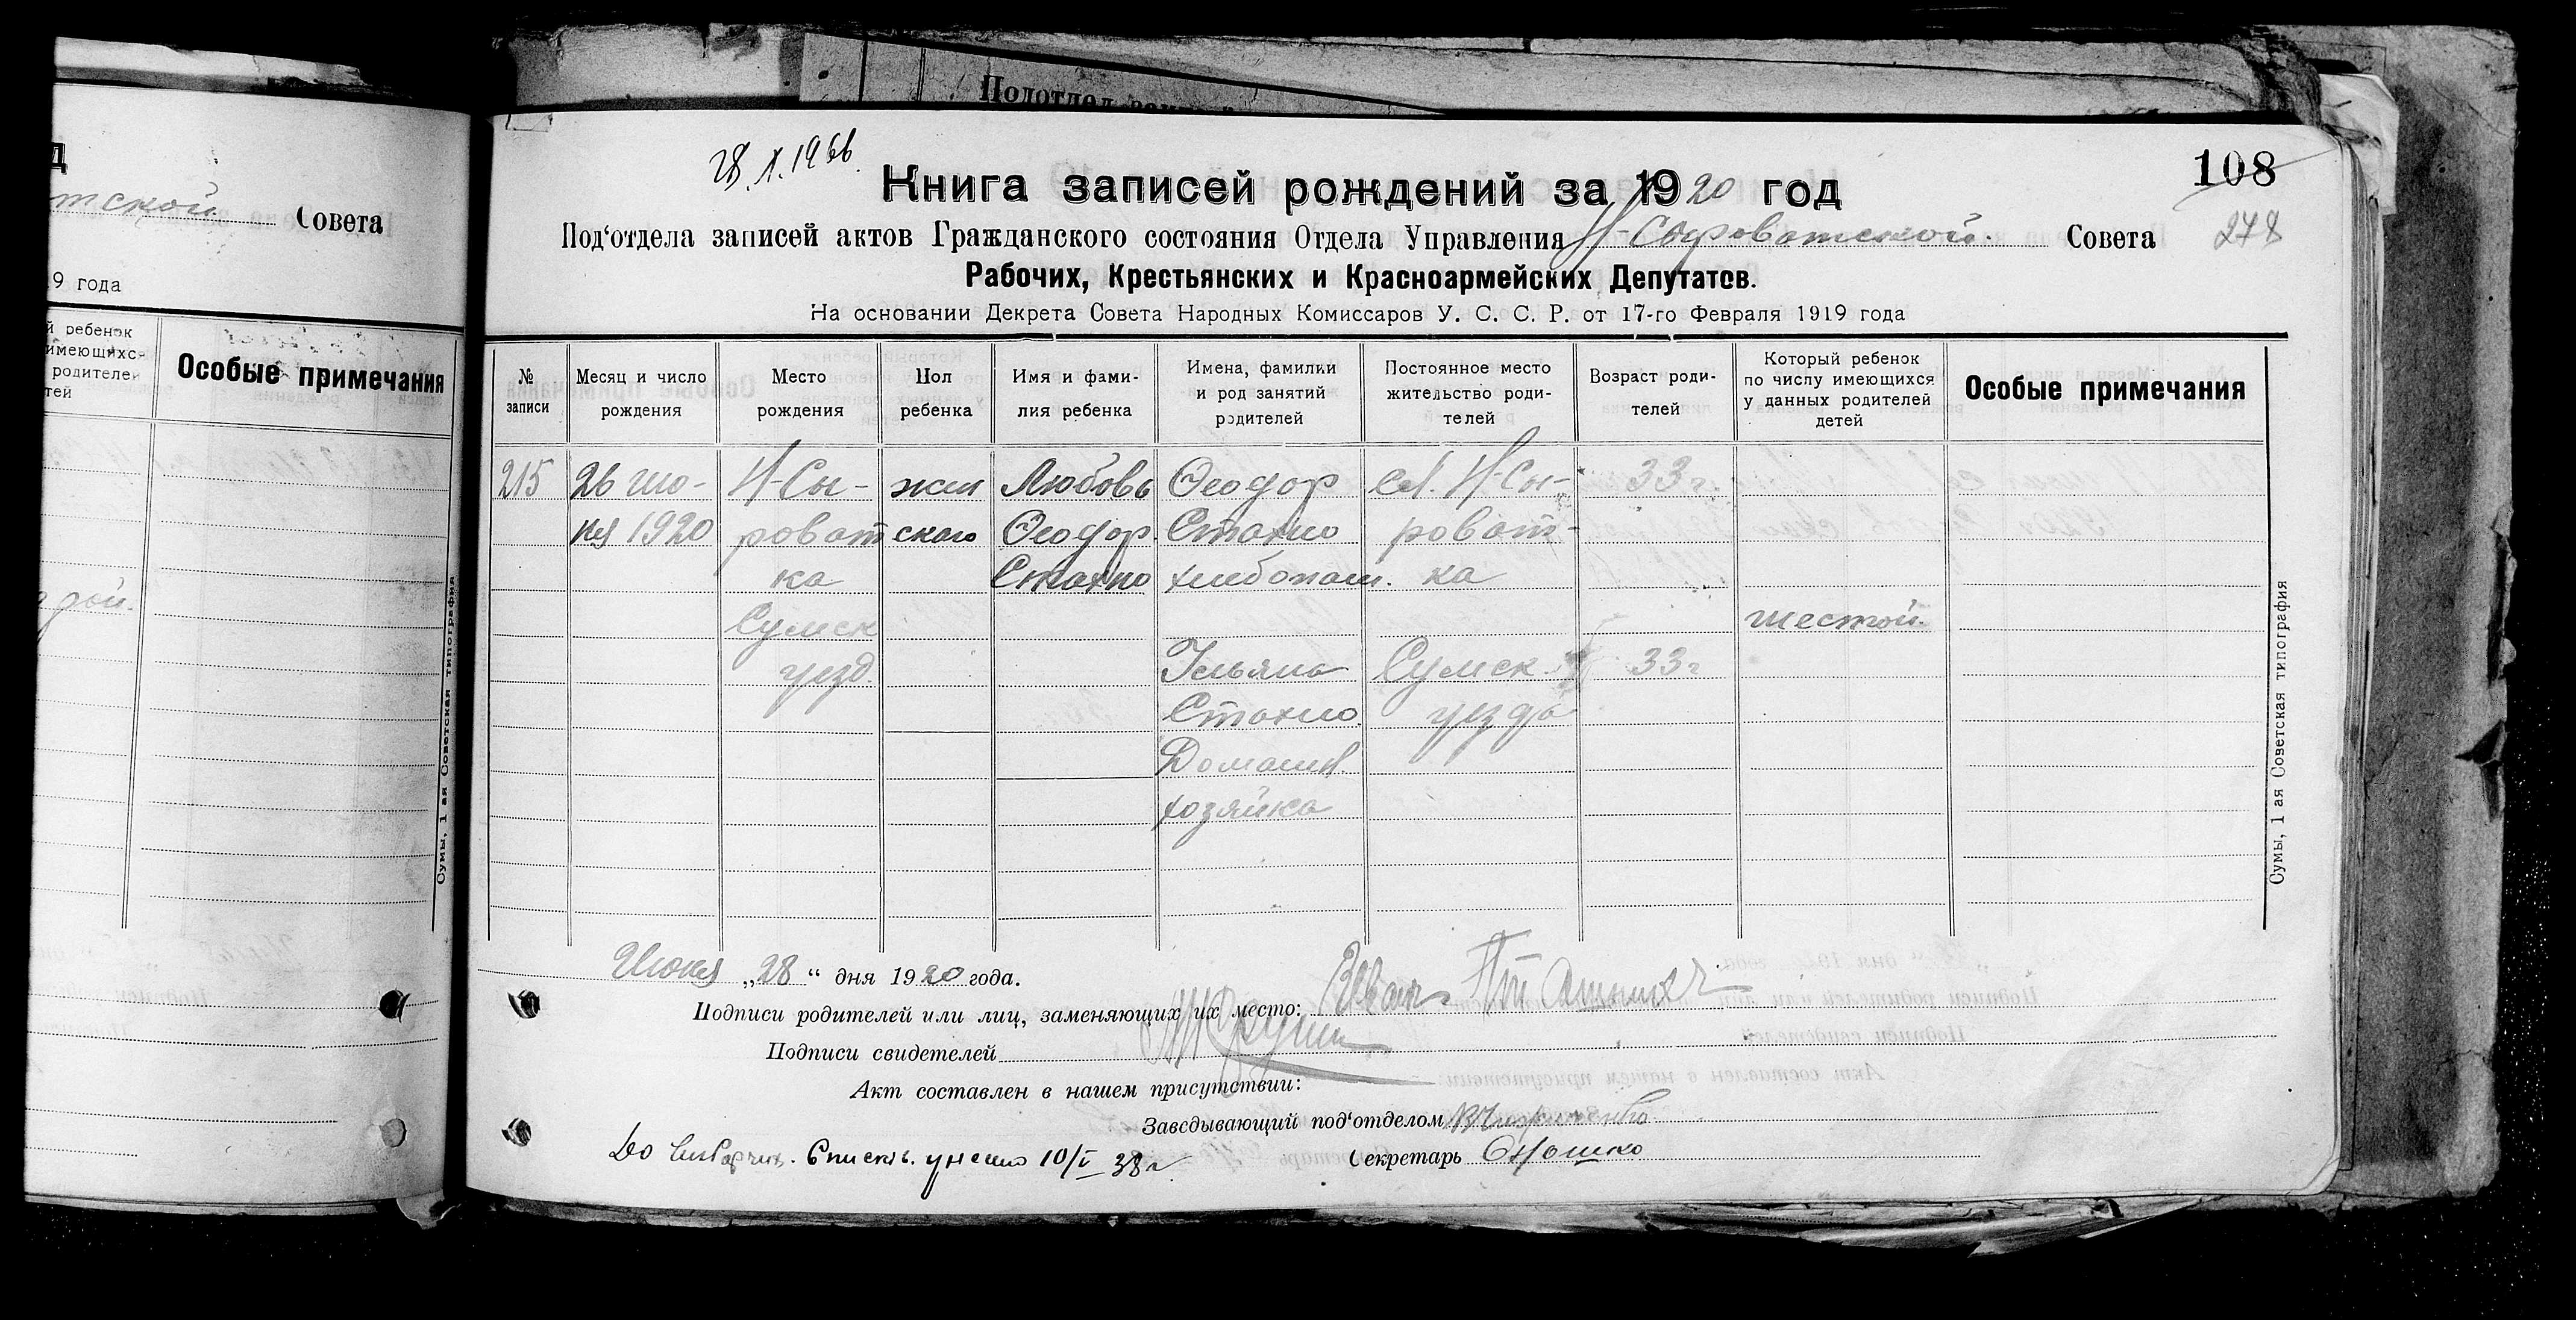 Подотдел
д
тской Совета
9 года
й ребенок
имеющихс-
родителей
тей
Особые примечания
рой.
Сумы, 1 ая Советская типография
108
278
Книга записей рождений за 1920 год
Под'отдела записей актов Гражданского состояния Отдела Управления Н-Сыроватской Совета
Рабочих, Крестьянских и Красноармейских Депутатов.
На основании Декрета Совета Народных Комиссаров У. С. С. Р. от 17-го Февраля 1919 года
№ записи
Месяц и число рождения
Место рождения
Пол ребенка
Имя и фами- лия ребенка
Имена, фамилии и род занятий родителей
Постоянное место жительство роди- телей
Возраст роди- телей
Который ребенок по числу имеющихся у данных родителей детей
Особые примечания
215 26 ию- Н-Сы- жен Любовь Феодор сл. Н-Сы- 33 г.
ня 1920 роват ского Феодор. Стахно роват-
ка Стахно хлебопаш. ка
Сумск шестой.
уезд. Ульяна Сумск. 33 г
Стахно. уезда
Домашн.
хозяйка
Июня „28“ дня 1920 года.
Подписи родителей или лиц, заменяющих их место: Иван
Подписи свидетелей
Акт составлен в нашем присутствии:
Заведывающий под'отделом
Секретарь
До списків. унесено 10/I 38 г
Сумы, 1 ая Советская типография